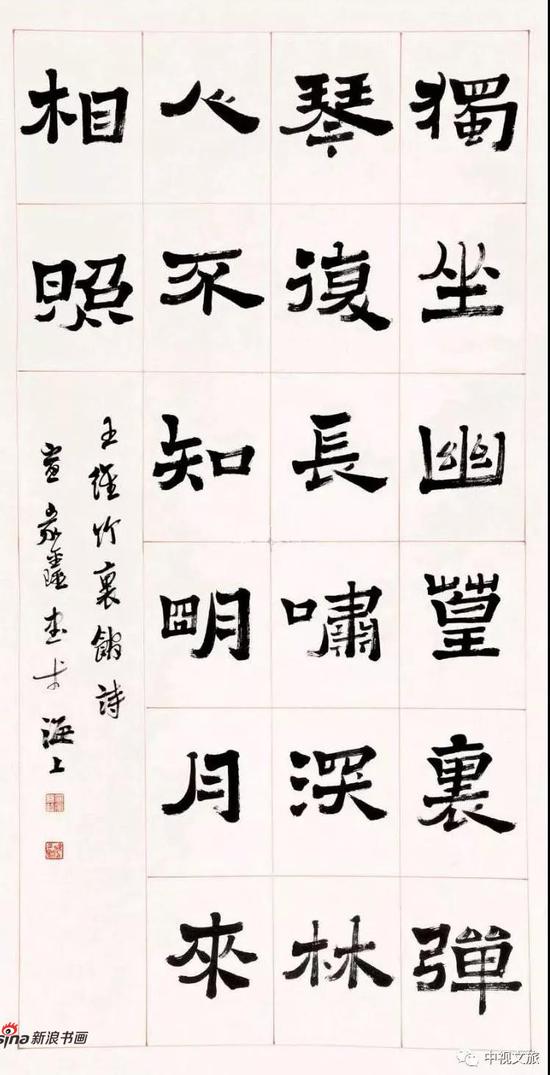 獨坐幽篁裏彈
琴復長嘯深林
人不知明月來
相照
王維竹裏館詩
宣家鑫書於海上
sina新浪书画
中视文旅